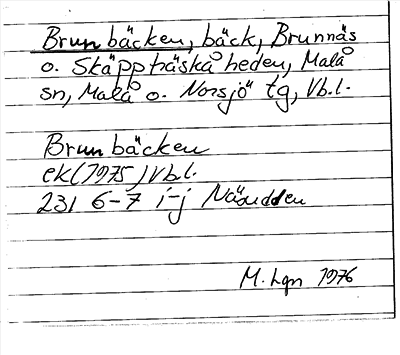 Brunbäcken, bäck, Brunnäs
o. Skäppträskåheden, Malå
sn, Malå o. Norsjö tg, Vb.l.
Brunbäcken
ek(1975) Vb.l.
231 6-7 i-j Näsudden
M. Lgn 1976